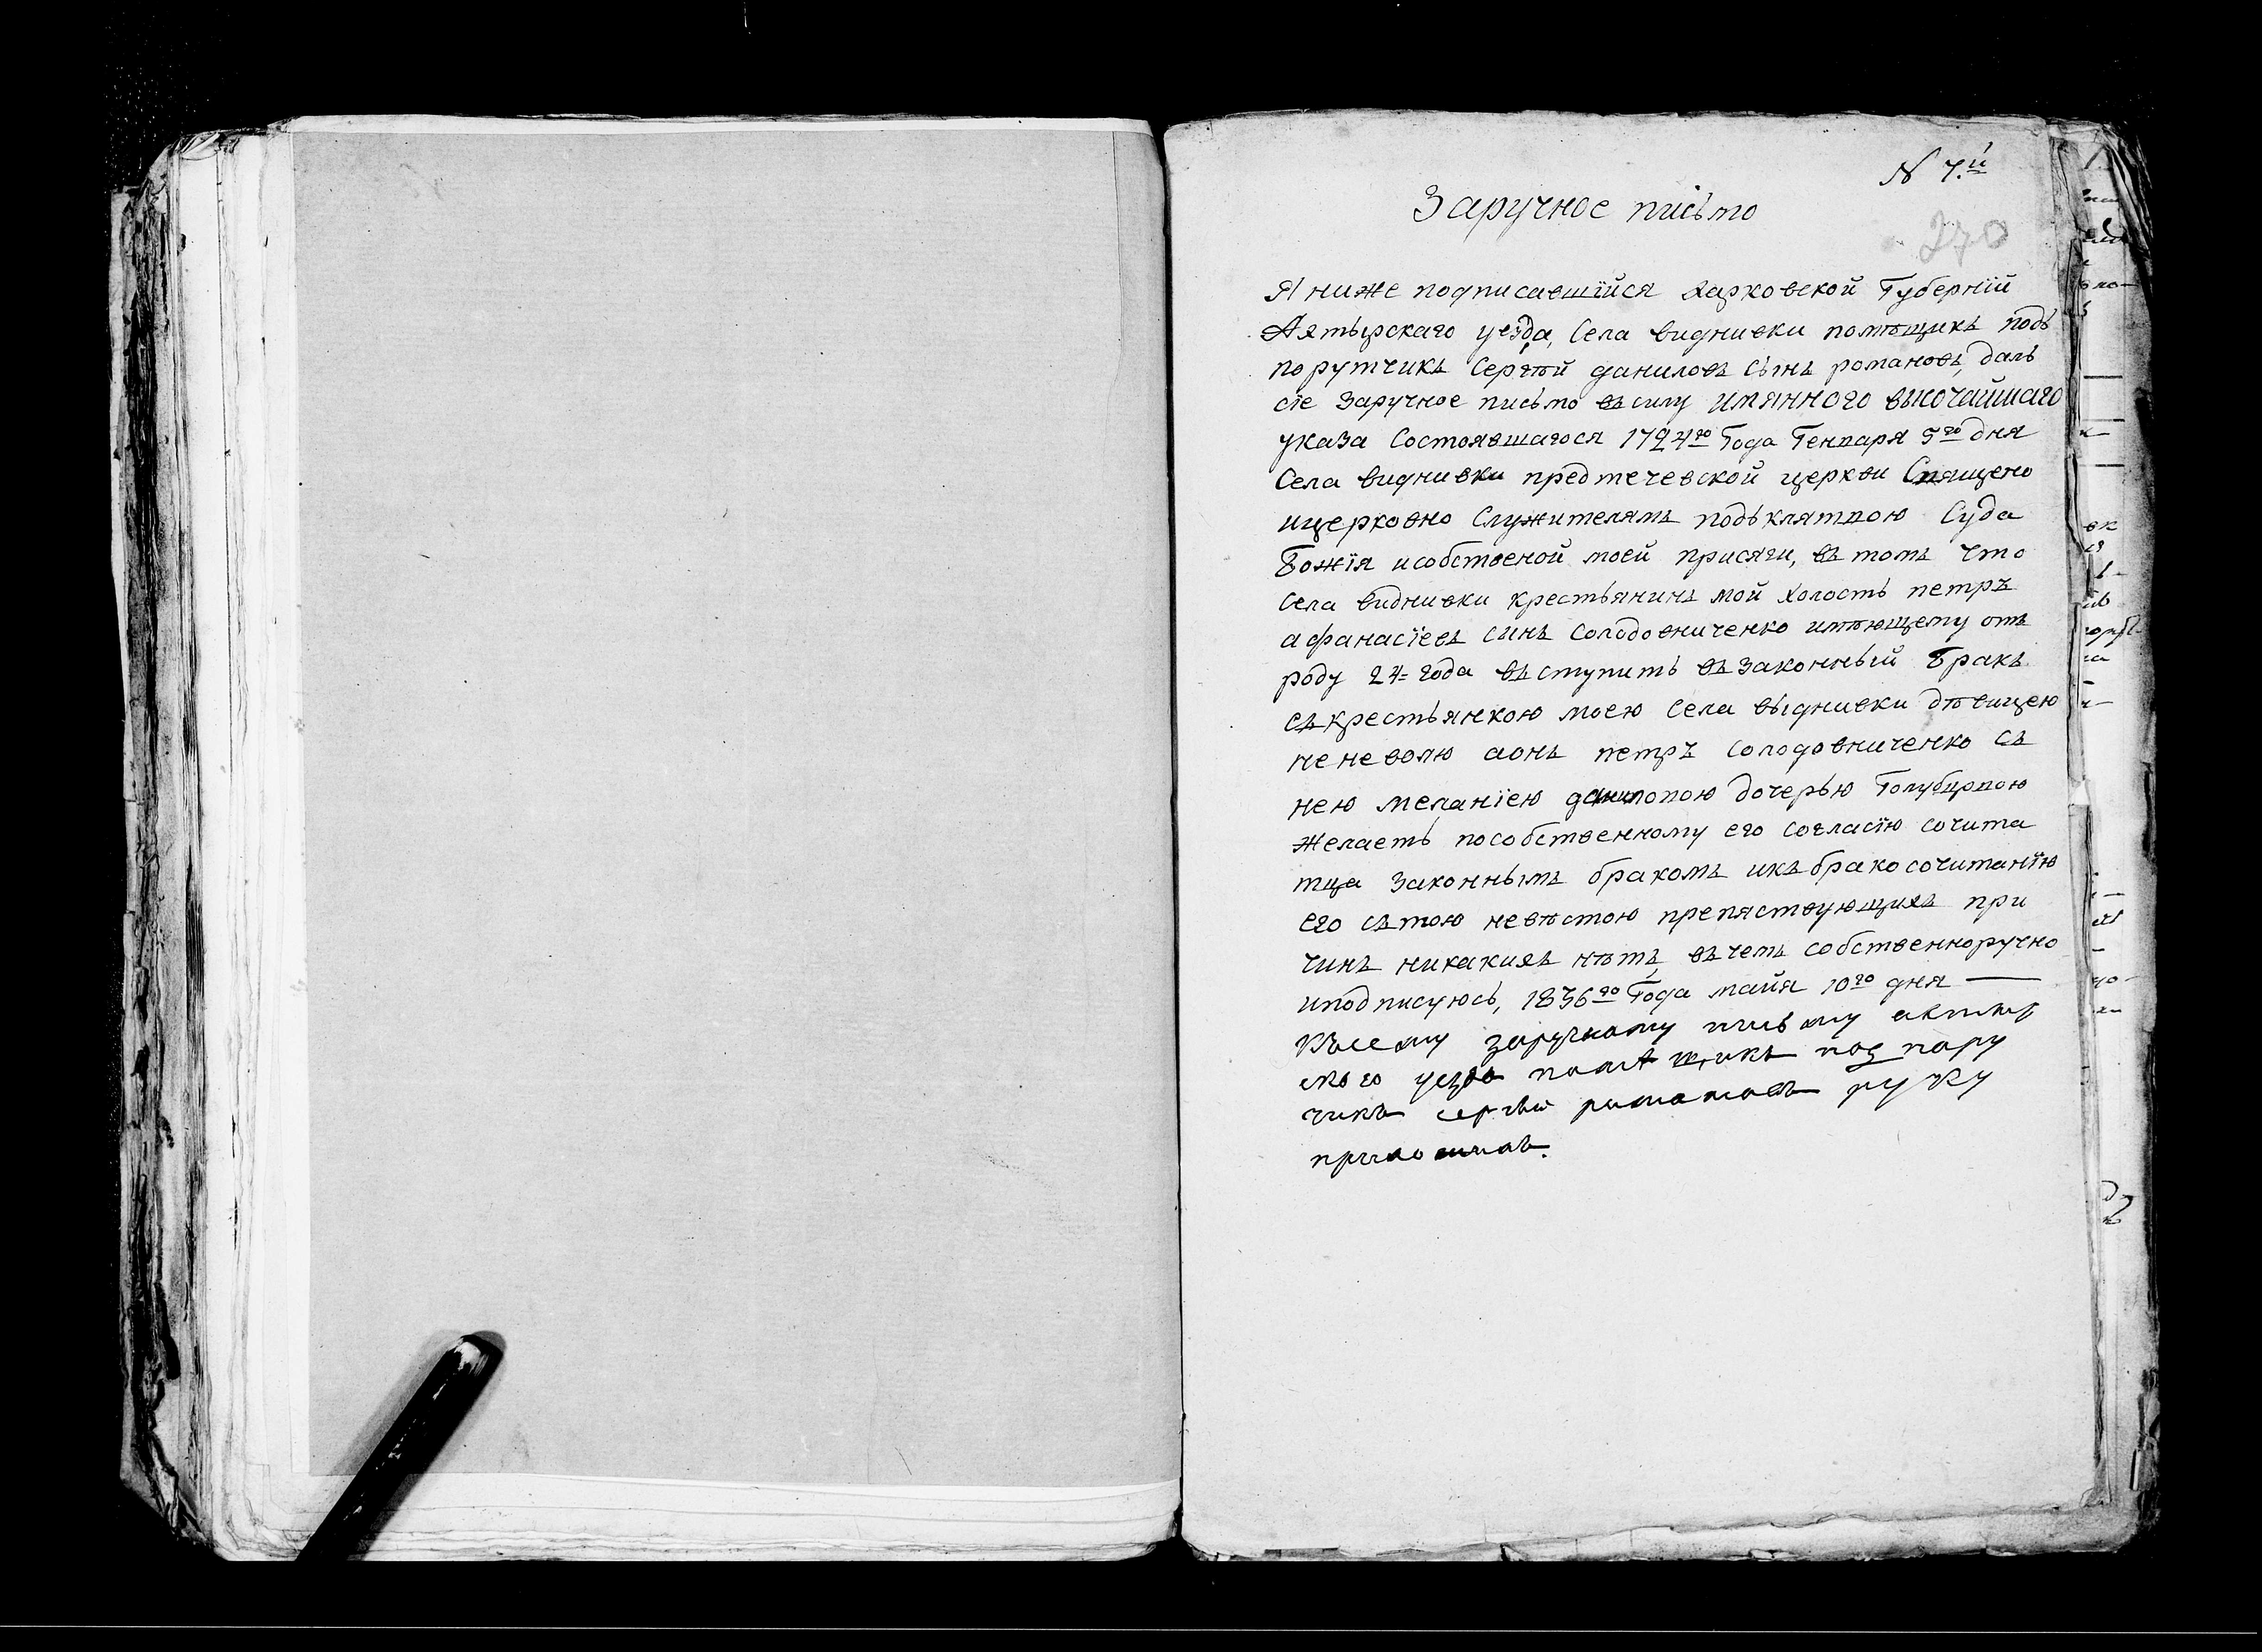 N 7.й
Заручное письмо
270
Я ниже подписавшїйся харковской Губернїй
Ахтырскаго уезда, Села видниvки помѣщикъ подъ
порутчикъ Сергѣй даниловъ сынъ романовъ, далъ
сїе заручное письмо въ силу имянного высочайшаго
указа Состоявшагося 1724го Года Генваря 5го дня
Села видниvки предтечевской церкви Священо
ицерковно Служителямъ подъ клятвою Суда
Божїя исобственой моей присяги, въ томъ что
села видниvки крестьянинъ мой холостъ петръ
афанасїевъ синъ солодовниченко имѣющему отъ
роду 24= года въступить въ законный Бракъ
съ крестьянкою моею села выдниvки дѣвицею
не неволю аонъ петръ солодовниченко съ
нею меланїею даниловою дочерью Голубцовою
желаетъ пособственному его согласїю сочита
тца законнымъ бракомъ икъ бракосочитанїю
его съ тою невѣстою препяствующихъ при
чинъ никакихъ нѣтъ, въ чемъ собственноручно
иподписуюсь, 1836го Года майя 10го дня —
Къ сему заручному письму ахтыр
ского уезда помѣщикъ под пору
чикъ сергѣй романовъ руку
приложилъ.